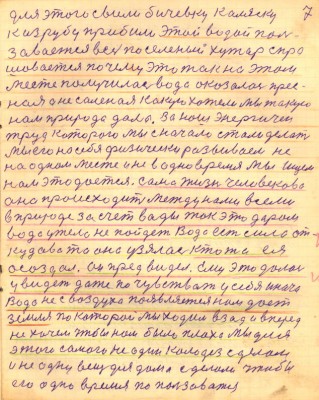 для этого свили бичевку коляску 7
к изрубу прибили этой водой пол-
завается весь поселеный хутар спра
шовается почему это так на этом
месте получилас вода оказалас прес-
ная а не саленая какую хотели мы такую
нам природа дала. За наш энергичен
труд которого мы сначало стали делать
мы его на себя физически развываем не
на одном месте и не в одно время мы ищем
нам это дается. Сама жизнь человекова
она происходит между нами всеми
в природе за счет вады так это даром
вода у тело не пойдет вода есть сила от
куда вата она узялас кто та ея
осоздал. Он предвидел. Ему это долас
увидет даже по чувствам у себя
Вода не с воздуха появляется нам дает
земля по каторой мы ходим взад и вперед
не хочем чтобы нам было плахо мы для
этого самого не один колодез сделали
и не одну вещ для дома сделали чтобы
его одно время по ползоватя